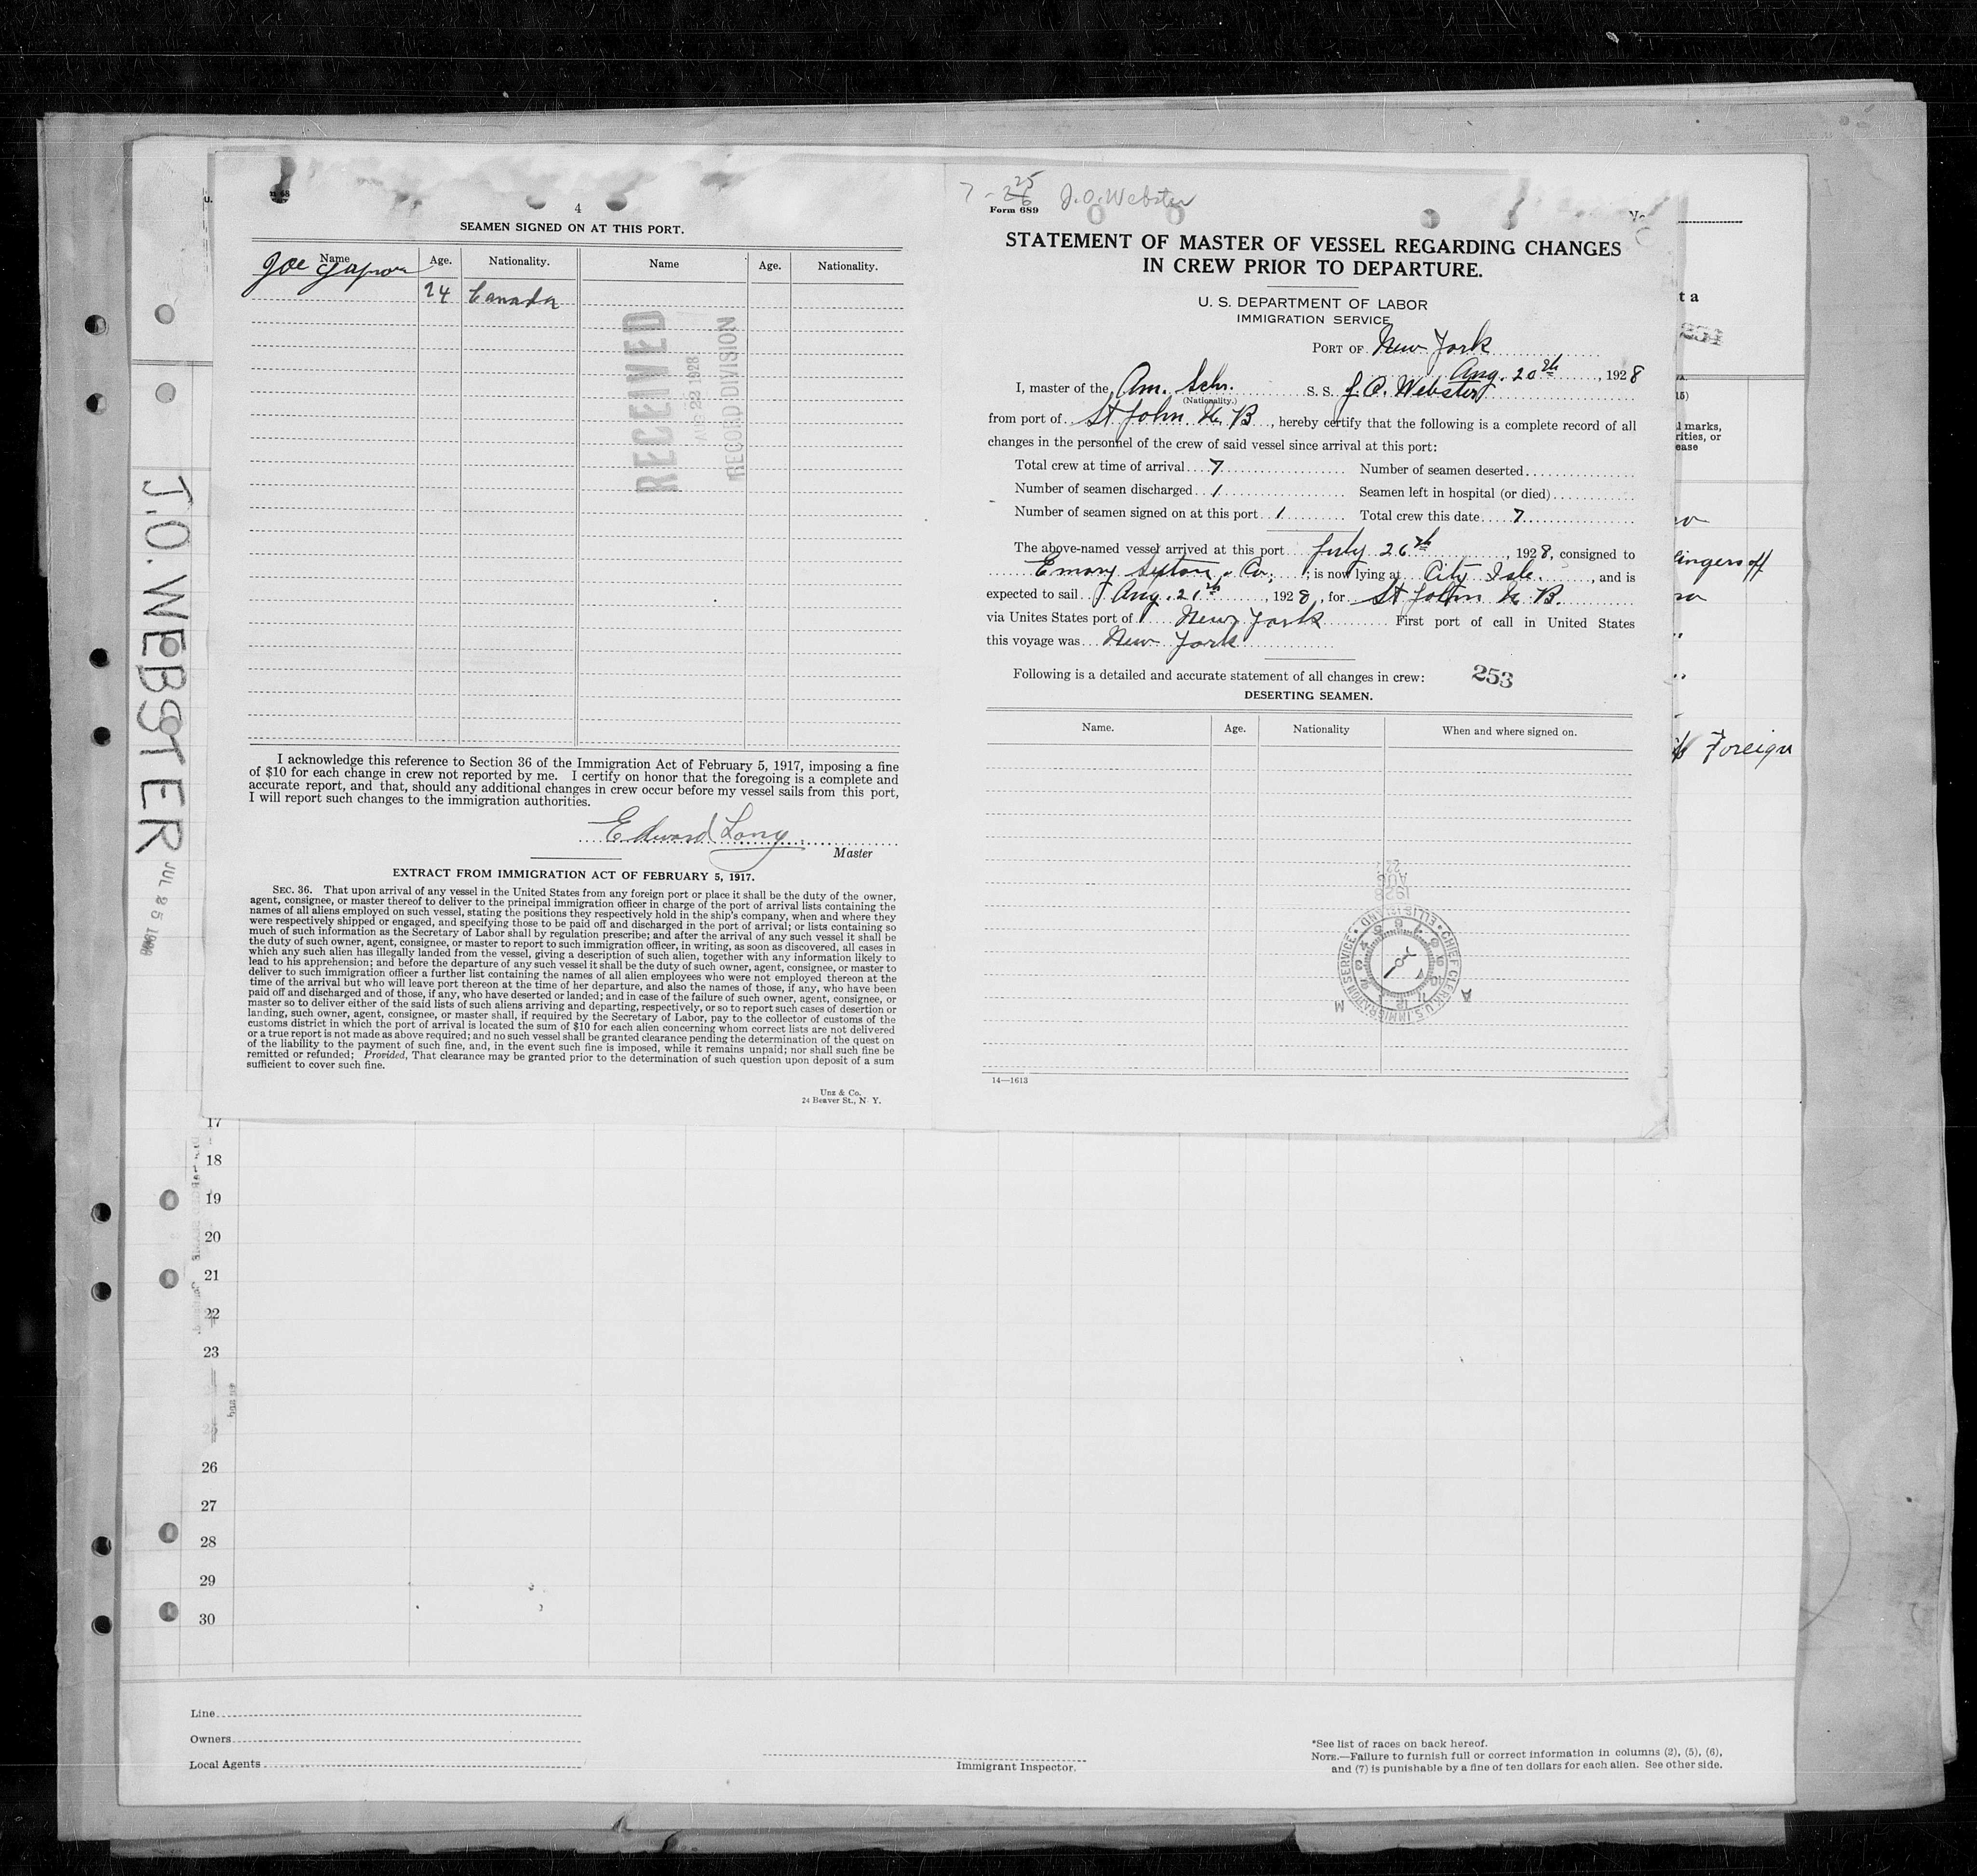 4
SEAMEN SIGNED ON AT THIS PORT.
Name Age. Nationality. Name Age. Nationality.
Joe
24 Canada
RECEIVED
AUG 22 1928
RECORD DIVISION
I acknowledge this reference to Section 36 of the Immigration Act of February 5, 1917, imposing a fine
of $10 for each change in crew not reported by me. I certify on honor that the foregoing is a complete and
accurate report, and that, should any additional changes in crew occur before my vessel sails from this port,
I will report such changes to the immigration authorities.
Edward Long
Master
EXTRACT FROM IMMIGRATION ACT OF FEBRUARY 5, 1917.
SEC. 36. That upon arrival of any vessel in the United States from any foreign port or place it shall be the duty of the owner,
agent, consignee, or master thereof to deliver to the principal immigration officer in charge of the port of arrival lists containing the
names of all aliens employed on such vessel, stating the positions they respectively hold in the ship's company, when and where they
were respectively shipped or engaged, and specifying those to be paid off and discharged in the port of arrival; or lists containing so
much of such information as the Secretary of Labor shall by regulation prescribe; and after the arrival of any such vessel it shall be
the duty of such owner, agent, consignee, or master to report to such immigration officer, in writing, as soon as discovered, all cases in
which any such alien has illegally landed from the vessel, giving a description of such alien, together with any information likely to
lead to his apprehension; and before the departure of any such vessel it shall be the duty of such owner, agent, consignee, or master to
deliver to such immigration officer a further list containing the names of all alien employees who were not employed thereon at the
time of the arrival but who will leave port thereon at the time of her departure, and also the names of those, if any, who have been
paid off and discharged and of those, if any, who have deserted or landed; and in case of the failure of such owner, agent, consignee, or
master so to deliver either of the said lists of such aliens arriving and departing, respectively, or so to report such cases of desertion or
landing, such owner, agent, consignee, or master shall, if required by the Secretary of Labor, pay to the collector of customs of the
customs district in which the port of arrival is located the sum of $10 for each alien concerning whom correct lists are not delivered
or a true report is not made as above required; and no such vessel shall be granted clearance pending the determination of the quest on
of the liability to the payment of such fine, and, in the event such fine is imposed, while it remains unpaid; nor shall such fine be
remitted or refunded; Provided, That clearance may be granted prior to the determination of such question upon deposit of a sum
sufficient to cover such fine.
Unz & Co.
24 Beaver St., N. Y.
J. O. Webster
Form 689
STATEMENT OF MASTER OF VESSEL REGARDING CHANGES
IN CREW PRIOR TO DEPARTURE.
U. S. DEPARTMENT OF LABOR
IMMIGRATION SERVICE
PORT OF New York
Aug. 20th, 1928
I, master of the Am. Schr. S. S. J. O. Webster
(Nationality.)
from port of St John N. B., hereby certify that the following is a complete record of all
changes in the personnel of the crew of said vessel since arrival at this port:
Total crew at time of arrival 7 Number of seamen deserted
Number of seamen discharged 1 Seamen left in hospital (or died)
Number of seamen signed on at this port 1 Total crew this date 7
The above-named vessel arrived at this port July 26th, 1928, consigned to
Emory & Co; is now lying at City Isle, and is
expected to sail Aug. 21th, 1928, for St John N. B.
via Unites States port of New York First port of call in United States
this voyage was New York
Following is a detailed and accurate statement of all changes in crew: 253
DESERTING SEAMEN.
Name. Age. Nationality When and where signed on.
1928
AUG
22
CHIEF CLERK U.S. IMMIGRATION SERVICE ELLIS ISLAND
A M
14—1613
J.O. WEBSTER
JUL 25 1928
No.
ta
254
l marks,
rities, or
ease
Foreign
17
18
19
20
21
22
23
26
27
28
29
30
Line
Owners
Local Agents
Immigrant Inspector.
*See list of races on back hereof.
NOTE.—Failure to furnish full or correct information in columns (2), (5), (6),
and (7) is punishable by a fine of ten dollars for each alien. See other side.